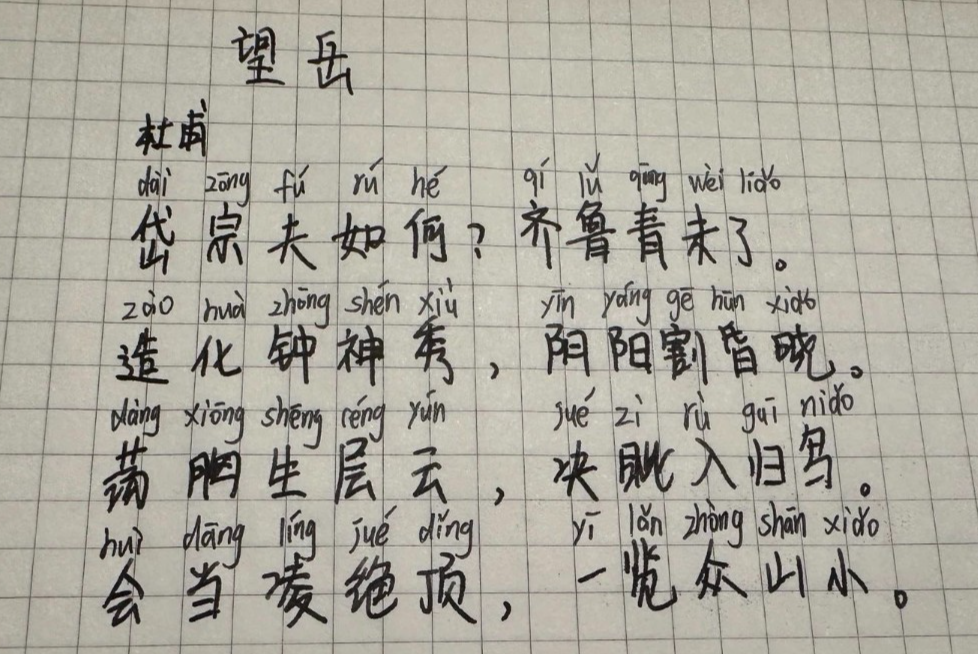 望岳
杜甫
dài zōng fú rú hé qí lǔ qīng wèi liǎo
岱宗夫如何？齐鲁青未了。
zào huà zhōng shén xiù yīn yáng gē hūn xiǎo
造化钟神秀，阴阳割昏晓。
dàng xiōng shēng céng yún jué zì rù guī niǎo
荡胸生层云，决眦入归鸟。
huì dāng líng jué dǐng yī lǎn zhòng shān xiǎo
会当凌绝顶，一览众山小。